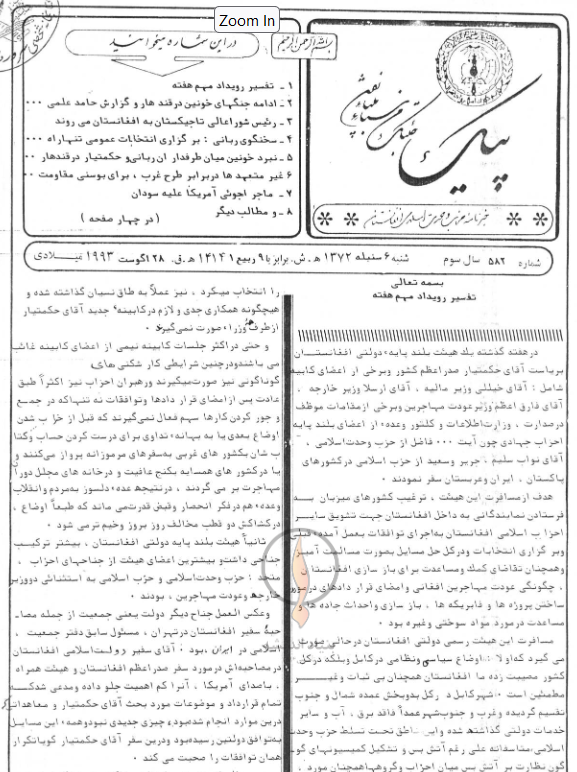 Zoom In
بسم الله الرحمن الرحیم
در این شماره میخوانید
۱ ـ تفسیر رویداد مهم هفته
۲ ـ ادامه جنگهای خونین در قندهار و گزارش حامد علمی ۰۰۰
۳ ـ رئیس شورا عالی تاجیکستان به افغانستان می روند
۴ ـ سخنگوی ربانی : بر گزاری انتخابات عمومی تنها راه ۰۰۰
۵ ـ نبرد خونین میان طرفدار ان ربانی و حکمتیار در قندهار ۰۰
۶ غیر متعهد ها در برابر طرح غرب ، برای بوسنی مقاومت ۰۰
۷ ـ ماجر اجوئی آمریکا علیه سودان
۸ ـ و مطالب دیگر
( در چهار صفحه )
پیک
خبرنامه
شماره ۵۸۲ سال سوم شنبه ۶ سنبله ۱۳۷۲ ه . ش . برابر با ۹ ربیع ۱ ۱۴۱۴ ه . ق . ۲۸ اگوست ۱۹۹۳ میلادی
بسمه تعالی
تفسیر رویداد مهم هفته
در هفته گذشته یك هیئت بلند پایهء دولتی افغانستان
بریاست آقای حکمتیار صدر اعظم کشور و برخی از اعضای کابینه
شامل : آقای خلیلی وزیر مالیه ، آقای ارسلا وزیر خارجه ،
آقای فارق اعظم وزیر عودت مهاجرین و برخی از مقامات موظف
در صدارت ، وزارت اطلاعات و کلتور و عدهء از اعضای بلند پایه
احزاب جهادی چون آیت ۰۰۰ فاضل از حزب وحدت اسلامی ،
آقای نواب سلیم ، جریر و سعید از حزب اسلامی در کشورهای
پاکستان ، ایران و عربستان سفر نمودند .
هدف از مسافرت این هیئت ، ترغیب کشور های میزبان به
فرستادن نمایندگانی به داخل افغانستان جهت تشویق سایر
احزاب اسلامی افغانستان به اجرای توافقات بعمل آمده قبلی
و بر گزاری انتخابات و در کل حل مسایل بصورت مسالمت آمیز
و همچنان تقاضای کمك و مساعدت برای باز سازی افغانستان
، چگونگی عودت مهاجرین افغانی و امضای قرار دادهای در مورد
ساختن پروژه ها و فابریکه ها ، باز سازی و احداث جاده ها و
مساعدت در مورد مواد سوختی و غیره بود .
مسافرت این هیئت رسمی دولتی افغانستان در حالی صورت
می گیرد که اولا اوضاع سیاسی و نظامی در کابل و بلکه در کل
کشور مصیبت زده ما افغانستان همچنان بی ثبات و غیر
مطمئین است . شهر کابل در کل بدو بخش عمده شمال و جنوب
تقسیم گردیده و غرب و جنوب شهر عمداً فاقد برق ، آب و سایر
خدمات دولتی گذاشته شده و این ناطق تحت تسلط حزب وحدت
اسلامی متاسفانه علی رغم آتش بس و تشکیل کمیسیونهای گو-
گون نظارت بر آتش بس میان احزاب و گروهها همچنان مورد ،
را انتخاب میکرد ، نیز عملاً به طاق نسیان گذاشته شده و
هیچگونه همکاری جدی و لازم در کابینهء جدید آقای حکمتیار
از طرف وزراء صورت نمی گیرد .
و حتی در اکثر جلسات کابینه نیمی از اعضای کابینه غائب
می باشند و در چنین شرایطی کار شکنی های
گوناگونی نیز صورت میگیرند و رهبران احزاب نیز اکثراً طبق
عادت پس از امضای قرار دادها و توافقات نه تنها که در جمع
و جور کردن کارها سهم فعال نمی گیرند که قبل از خراب شدن
اوضاع بعدی یا به بهانهء تداوی برای درست کردن حساب و کتا
ب شان بکشور های غربی به سفر های مرموزانه پرواز می کنند و
یا در کشور های همسایه بکنج عافیت و در خانه های مجلل دورا
مهاجرت بر می گردند ، در نتیجه عدهء دلسوز به مردم و انقلاب
و عدهء هم در فکر انحصار و قبض قدرت می ماند که طبعاً اوضاع ،
در کشاکش دو قطب مخالف روز بروز وخیم تر می شود .
ثانیاً هیئت بلند پایه دولتی افغانستان ، بیشتر ترکیب
جناحی داشته و بیشترین اعضای هیئت از جناحهای احزاب ،
متحد : حزب وحدت اسلامی و حزب اسلامی به استثنائی دو وزیر
خارجه و عودت مهاجرین ، بودند .
و عکس العمل جناح دیگر دولت یعنی جمعیت از جمله مصا-
حبهء سفیر افغانستان در تهران ، مسئول سابق دفتر جمعیت ،
اسلامی در ایران ، بود . آقای سفیر دولت اسلامی افغانستان
در مصاحبه اش در مورد سفر صدر اعظم افغانستان و هیئت همراه
، با صدای آمریکا ، آنرا کم اهمیت جلو داده و مدعی شد که
تمام قرارداد و موضوعات مورد بحث آقای حکمتیار و معاهدات
درین موارد انجام شده بود و چیزی جدیدی نبود و همهء این مسایل
به توافق دولتین رسیده بود و درین سفر آقای حکمتیار گویا تکرار
همان توافقات را صحبت می کند .